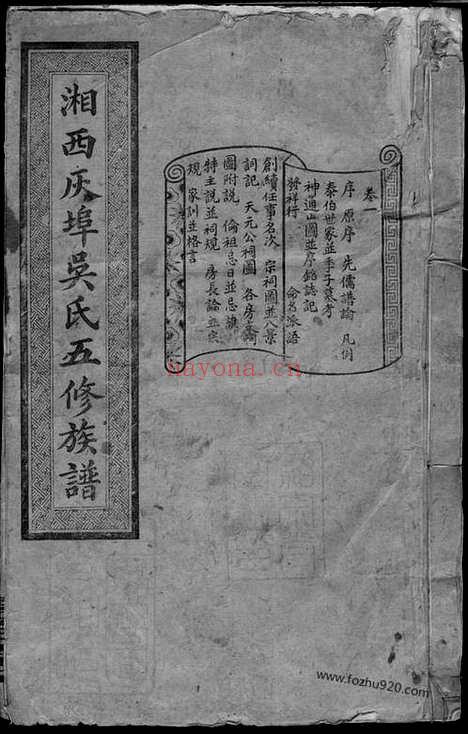 湘西灰埠吳氏五修族譜
卷一
序 原序 先儒譜論 凡例
泰伯世家並季子墓考
神道山圖並序銘誌記
發祥行 命名派語
創續任事名次 宗祠圖並八景
詞記 天元公祠圖 各房
圖附說 倫祖忌日並忌
特主說並祠規 房長論並宗
規 家訓並格言
nayona.cn
www.fozhu920.com